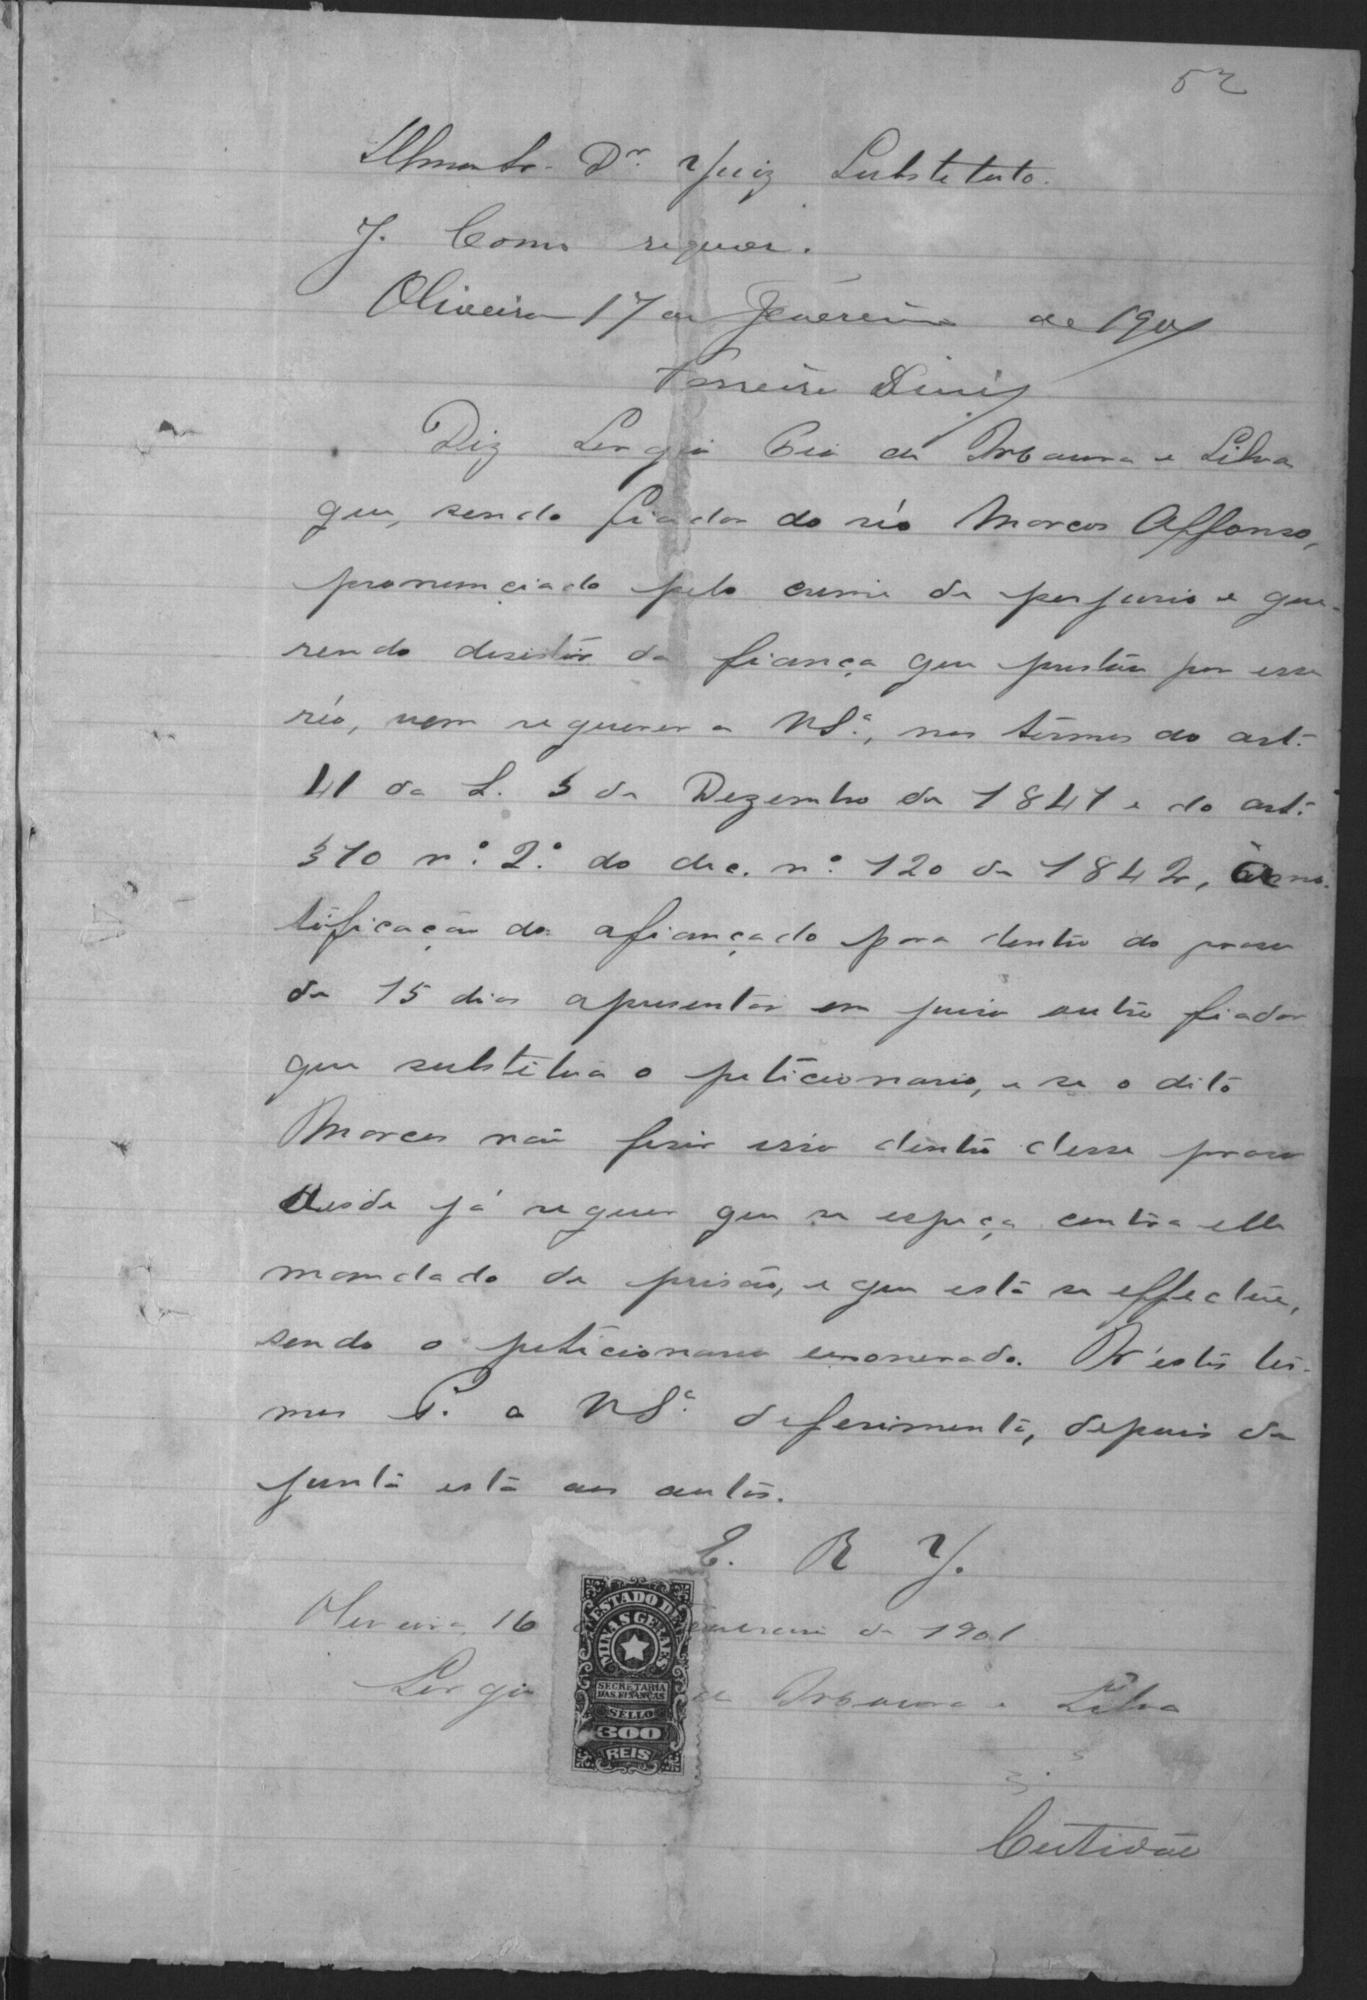 52
Illmo Sr. Dr. Juiz Substituto.
J. Como requer.
Oliveira 17 de Fevereiro de 1901
Ferreira Diniz
Diz Sergio Pio da Silva
que, sendo fiador do réo Marcos Affonso,
pronunciado pelo crime de perjurio e que-
rendo desistir da fiança que prestou por esse
réo, vem requerer a VSª, nos têrmos do art.
41 da L. 3 de Dezembro de 1841 e do art.
310 nº 2º do dec. nº 120 de 1842, a no-
tificação do afiançado para dentro do praso
de 15 dias apresentar em juiso outro fiador
que substitua o peticionario, e se o dito
Marcos não fiser isso dentro desse praso
desde já requer que se espeça contra elle
mandado de prisão, e que esta se effectue,
sendo o peticionario exonerado. N'estes ter-
mos P. a VSª deferimento, depois de
junta esta aos autos.
E. R. J.
Oliveira, 16 Fevereiro de 1901
Sergio de Silva
ESTADO DE
MINAS GERAES
SECRETARIA
DAS FINANÇAS
SELLO
300
REIS
Certidão